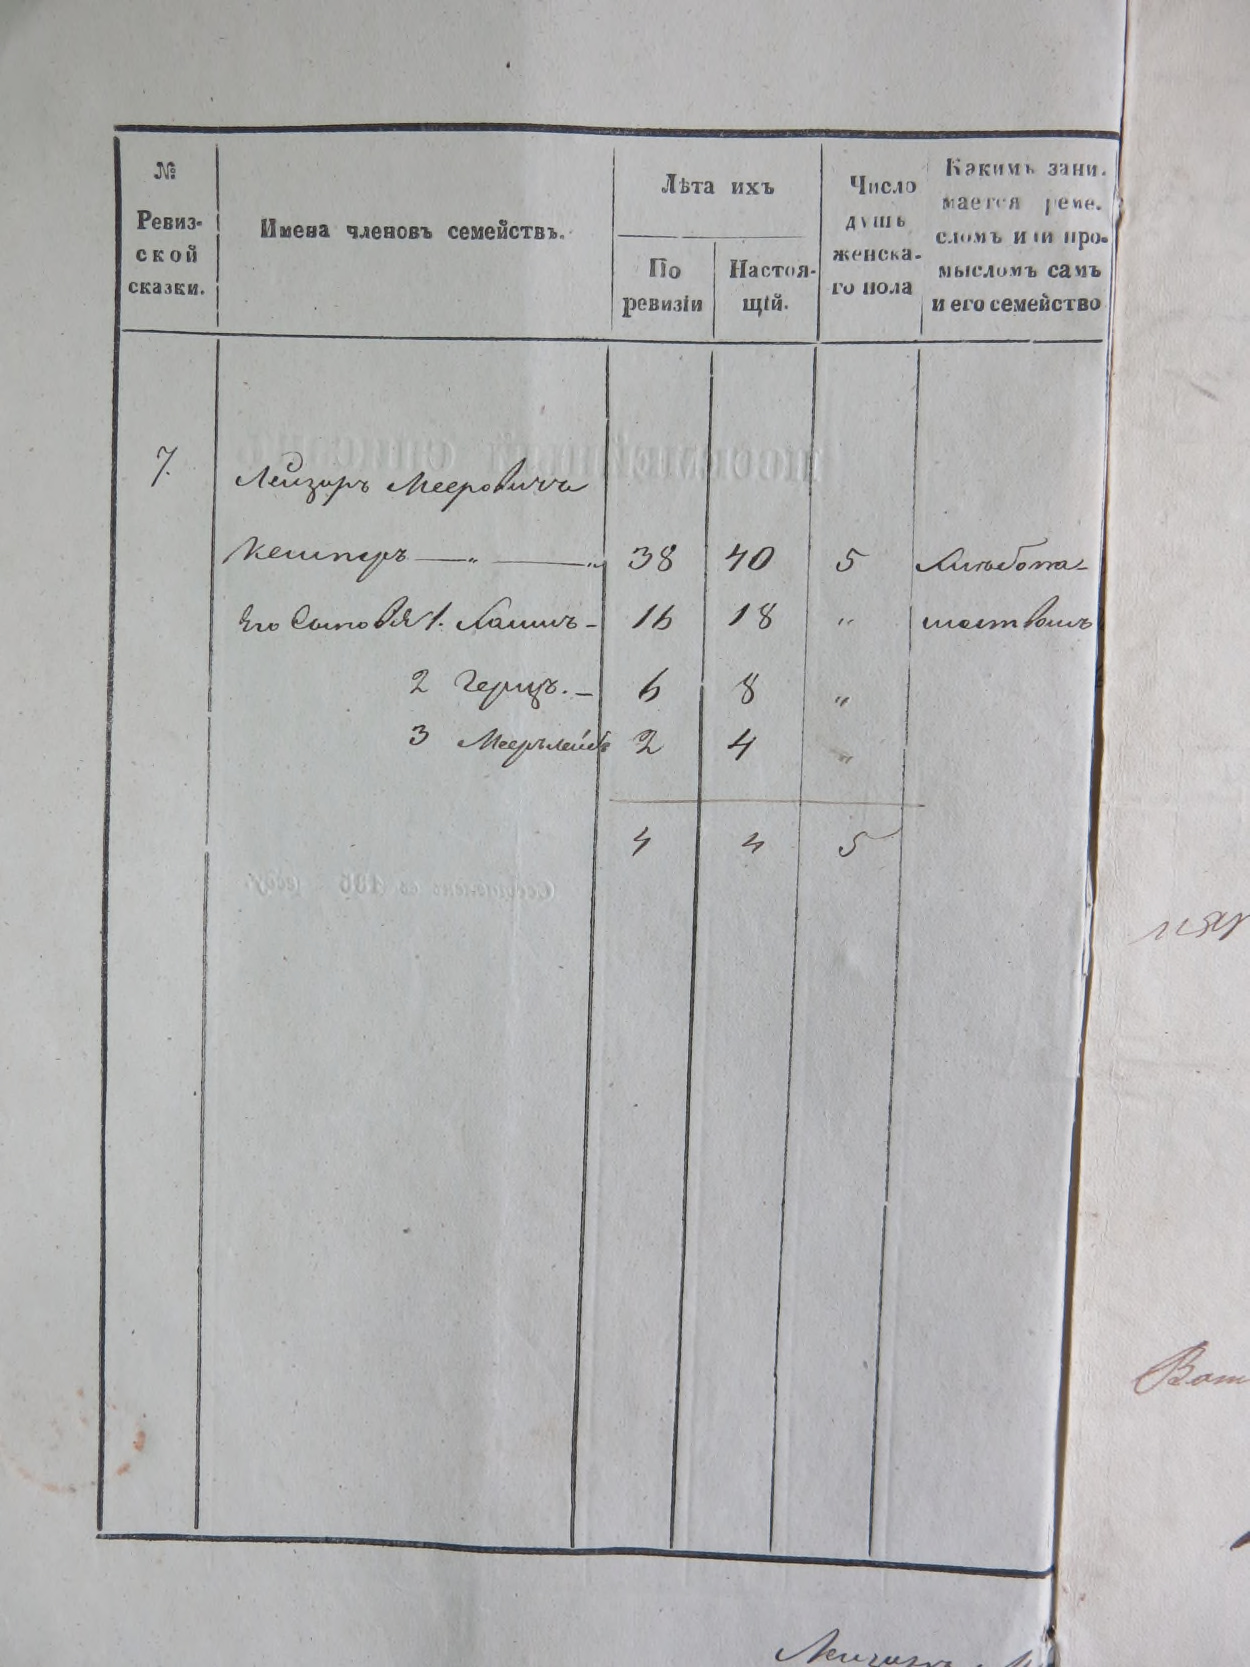 № Ревиз-ской сказки.
Имена членовъ семействъ.
Лѣта ихъ
По ревизіи
Настоя-щій.
Число душъ женска-го пола
Какимъ зани-мается реме-сломъ или про-мысломъ самъ и его семейство
7. Лейзаръ Мееровичъ
Кемперъ — " — " 38 40 5 Хлѣбопа-
Его Сыновья 1. Хаимъ - 16 18 " шествомъ
2 Герцъ. - 6 8 "
3 2 4 "
4 4 5